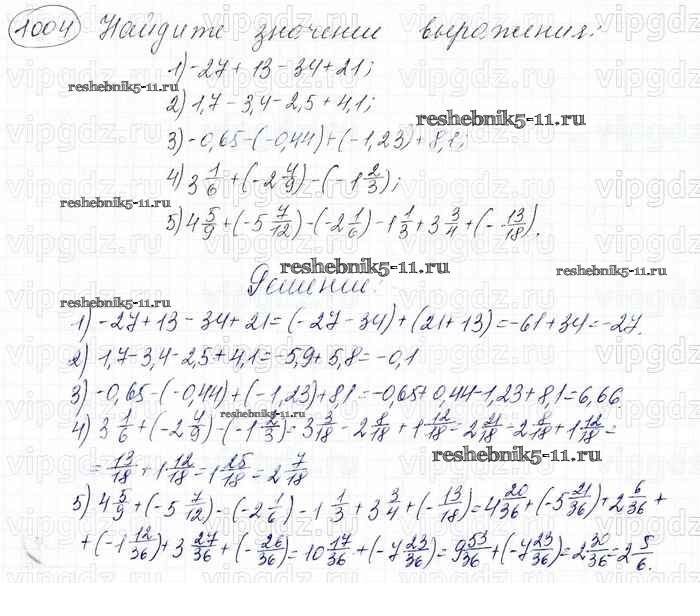 1004 Найдите значение выражения:
1) -27 + 13 - 34 + 21;
2) 1,7 - 3,4 - 2,5 + 4,1;
3) -0,65 - (-0,44) + (-1,23) + 8,1;
4) 3 1/6 + (-2 4/9) - (-1 2/3);
5) 4 5/9 + (-5 7/12) - (-2 1/6) - 1 1/3 + 3 3/4 + (- 13/18).
Решение:
1) -27 + 13 - 34 + 21 = (-27 - 34) + (21 + 13) = -61 + 34 = -27.
2) 1,7 - 3,4 - 2,5 + 4,1 = -5,9 + 5,8 = -0,1
3) -0,65 - (-0,44) + (-1,23) + 8,1 = -0,65 + 0,44 - 1,23 + 8,1 = 6,66
4) 3 1/6 + (-2 4/9) - (-1 2/3) = 3 3/18 - 2 8/18 + 1 12/18 = 2 21/18 - 2 8/18 + 1 12/18 =
= 13/18 + 1 12/18 = 1 25/18 = 2 7/18
5) 4 5/9 + (-5 7/12) - (-2 1/6) - 1 1/3 + 3 3/4 + (- 13/18) = 4 20/36 + (-5 21/36) + 2 6/36 +
+ (-1 12/36) + 3 27/36 + (- 26/36) = 10 17/36 + (-7 23/36) = 9 53/36 + (-7 23/36) = 2 30/36 = 2 5/6.
reshebnik5-11.ru
reshebnik5-11.ru
reshebnik5-11.ru
reshebnik5-11.ru
reshebnik5-11.ru
reshebnik5-11.ru
reshebnik5-11.ru
vipgdz.ru